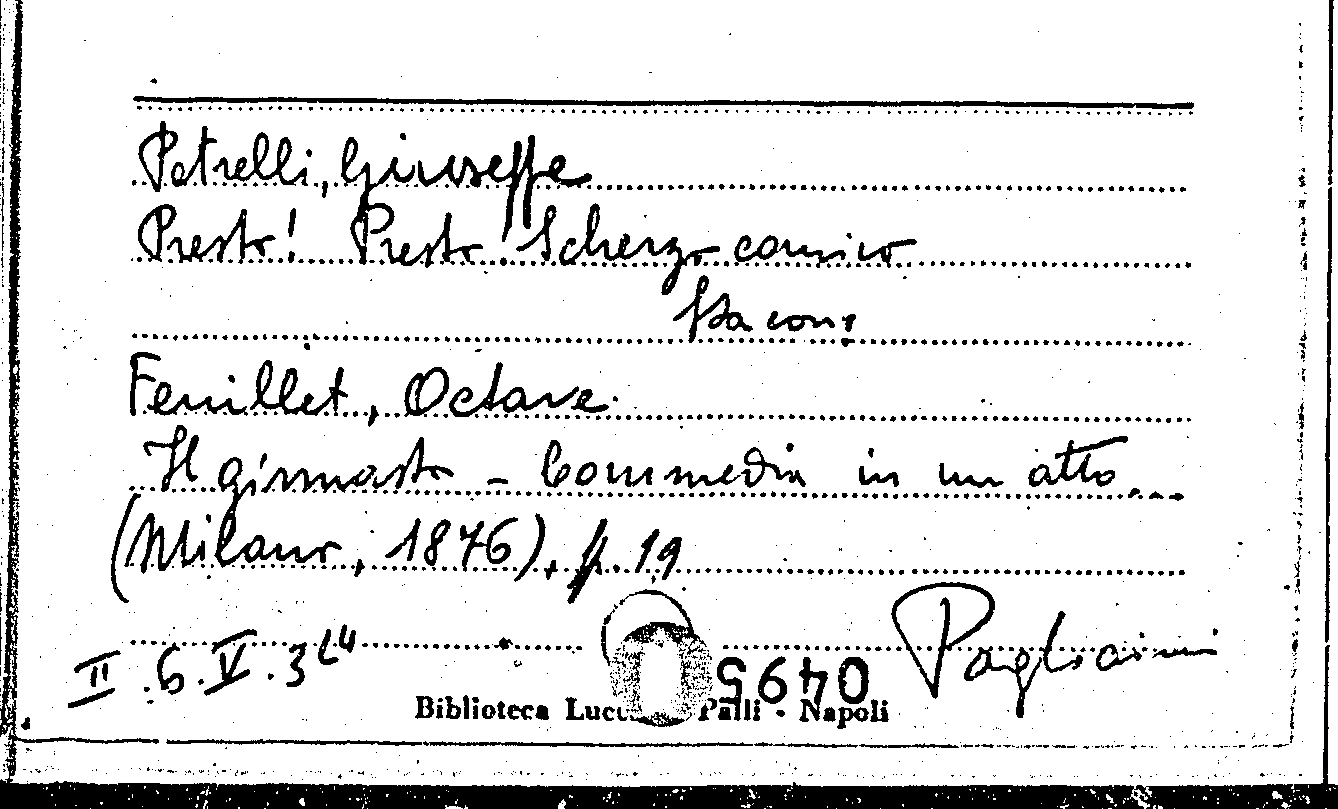 Petrelli, Giuseppe
Presto! Presto! Scherzo comico
Sta con:
Feuillet, Octave
Il ginnasta - Commedia in un atto...
(Milano, 1876), p. 19
II.6.V.3
0495
Pagliaini
Biblioteca Lucc Palli - Napoli